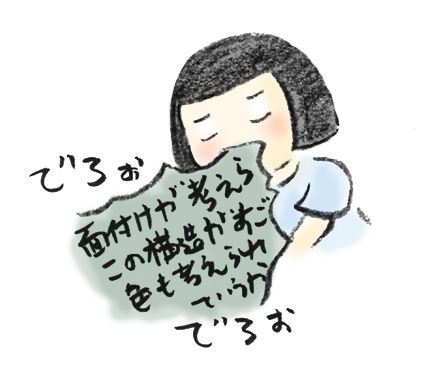 でろぉ
面付けが考えら
この構造がすご
色も考えられ
ていうか
でろぉ